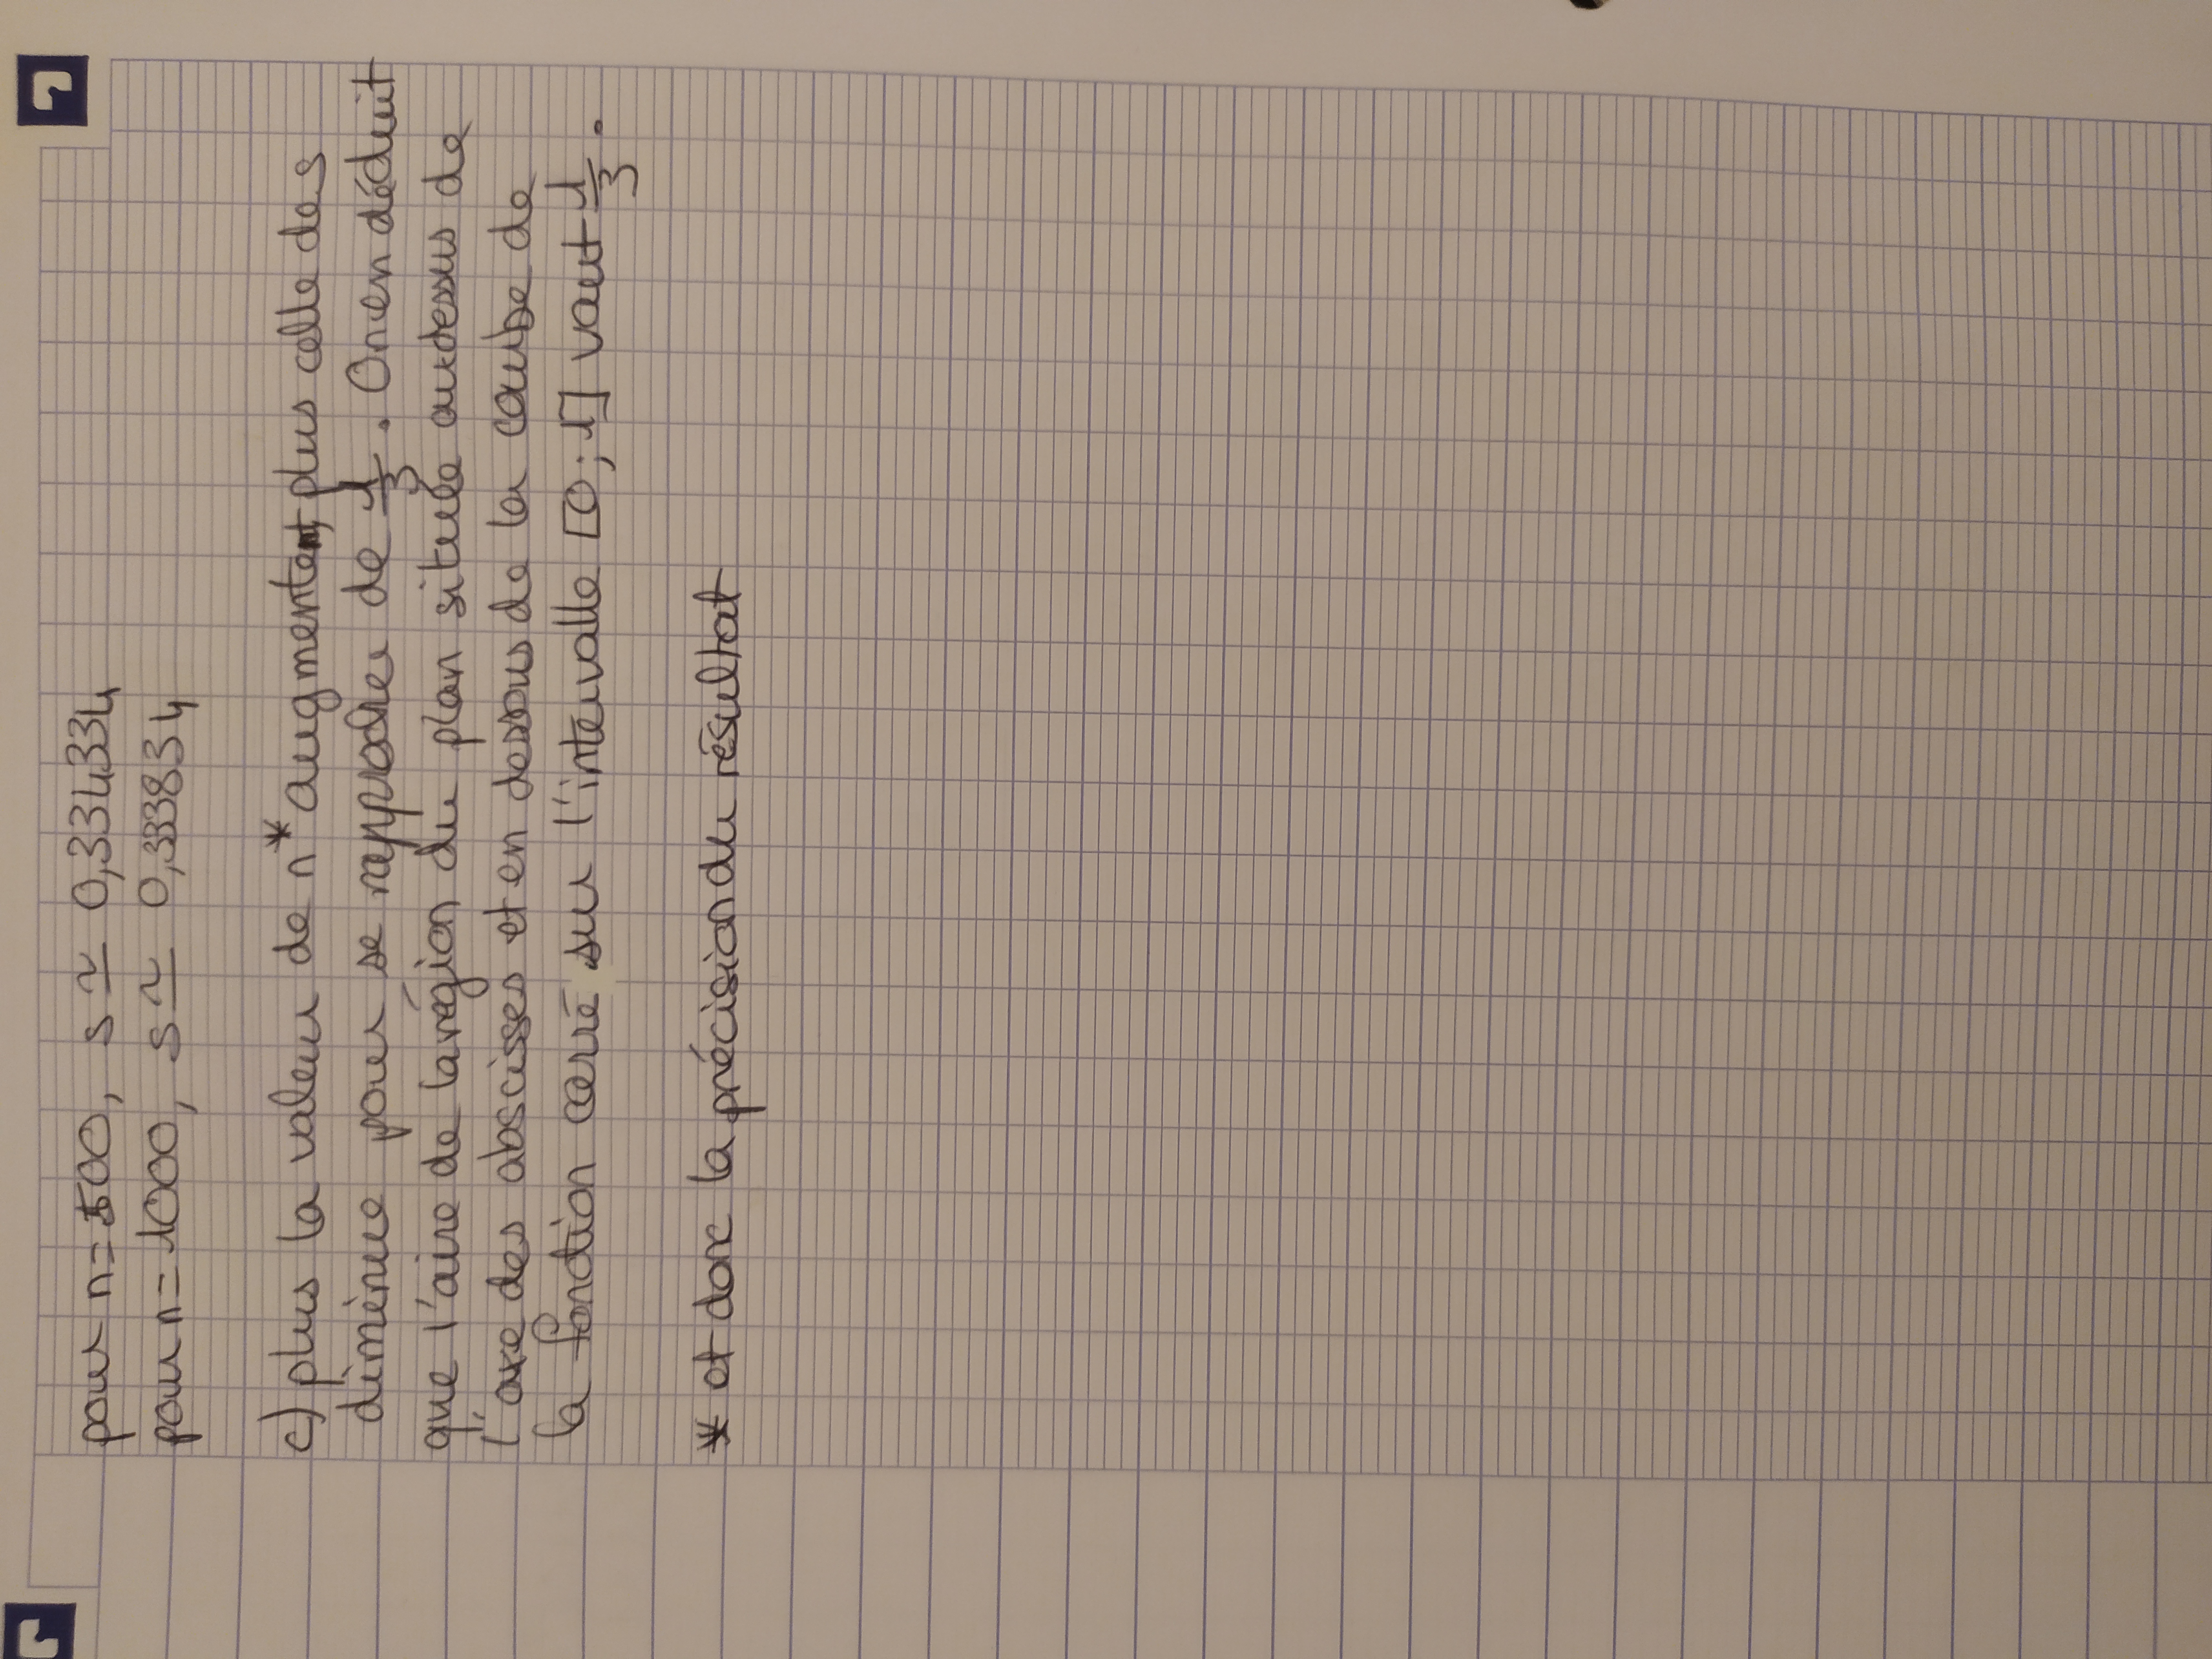 pour n=500, s ≃ 0,334334
pour n=1000, s ≃ 0,333834
c) plus la valeur de n* augmentent, plus celle de s
diminue pour se rapproche de 1/3. On en déduit
que l'aire de la région du plan située au dessus de
l'axe des abscisses et en dessous de la courbe de
la fonction carré sur l'intervalle [0;1] vaut 1/3.
* et donc la précision du résultat